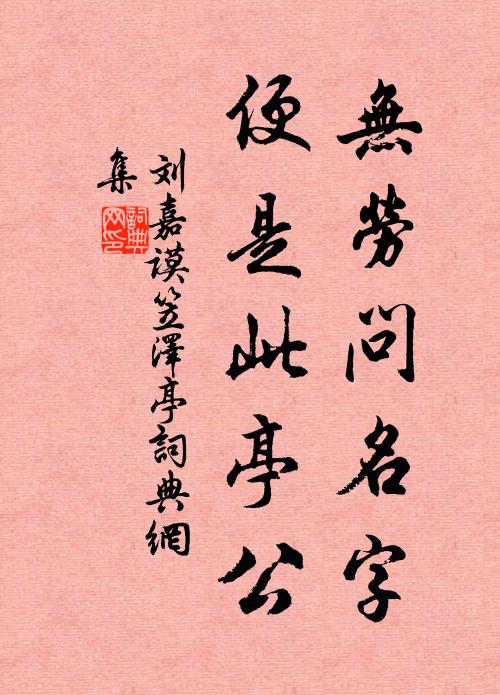 無勞問名字
便是此亭公
刘嘉謨笠澤亭詞典網
集
詞典網印